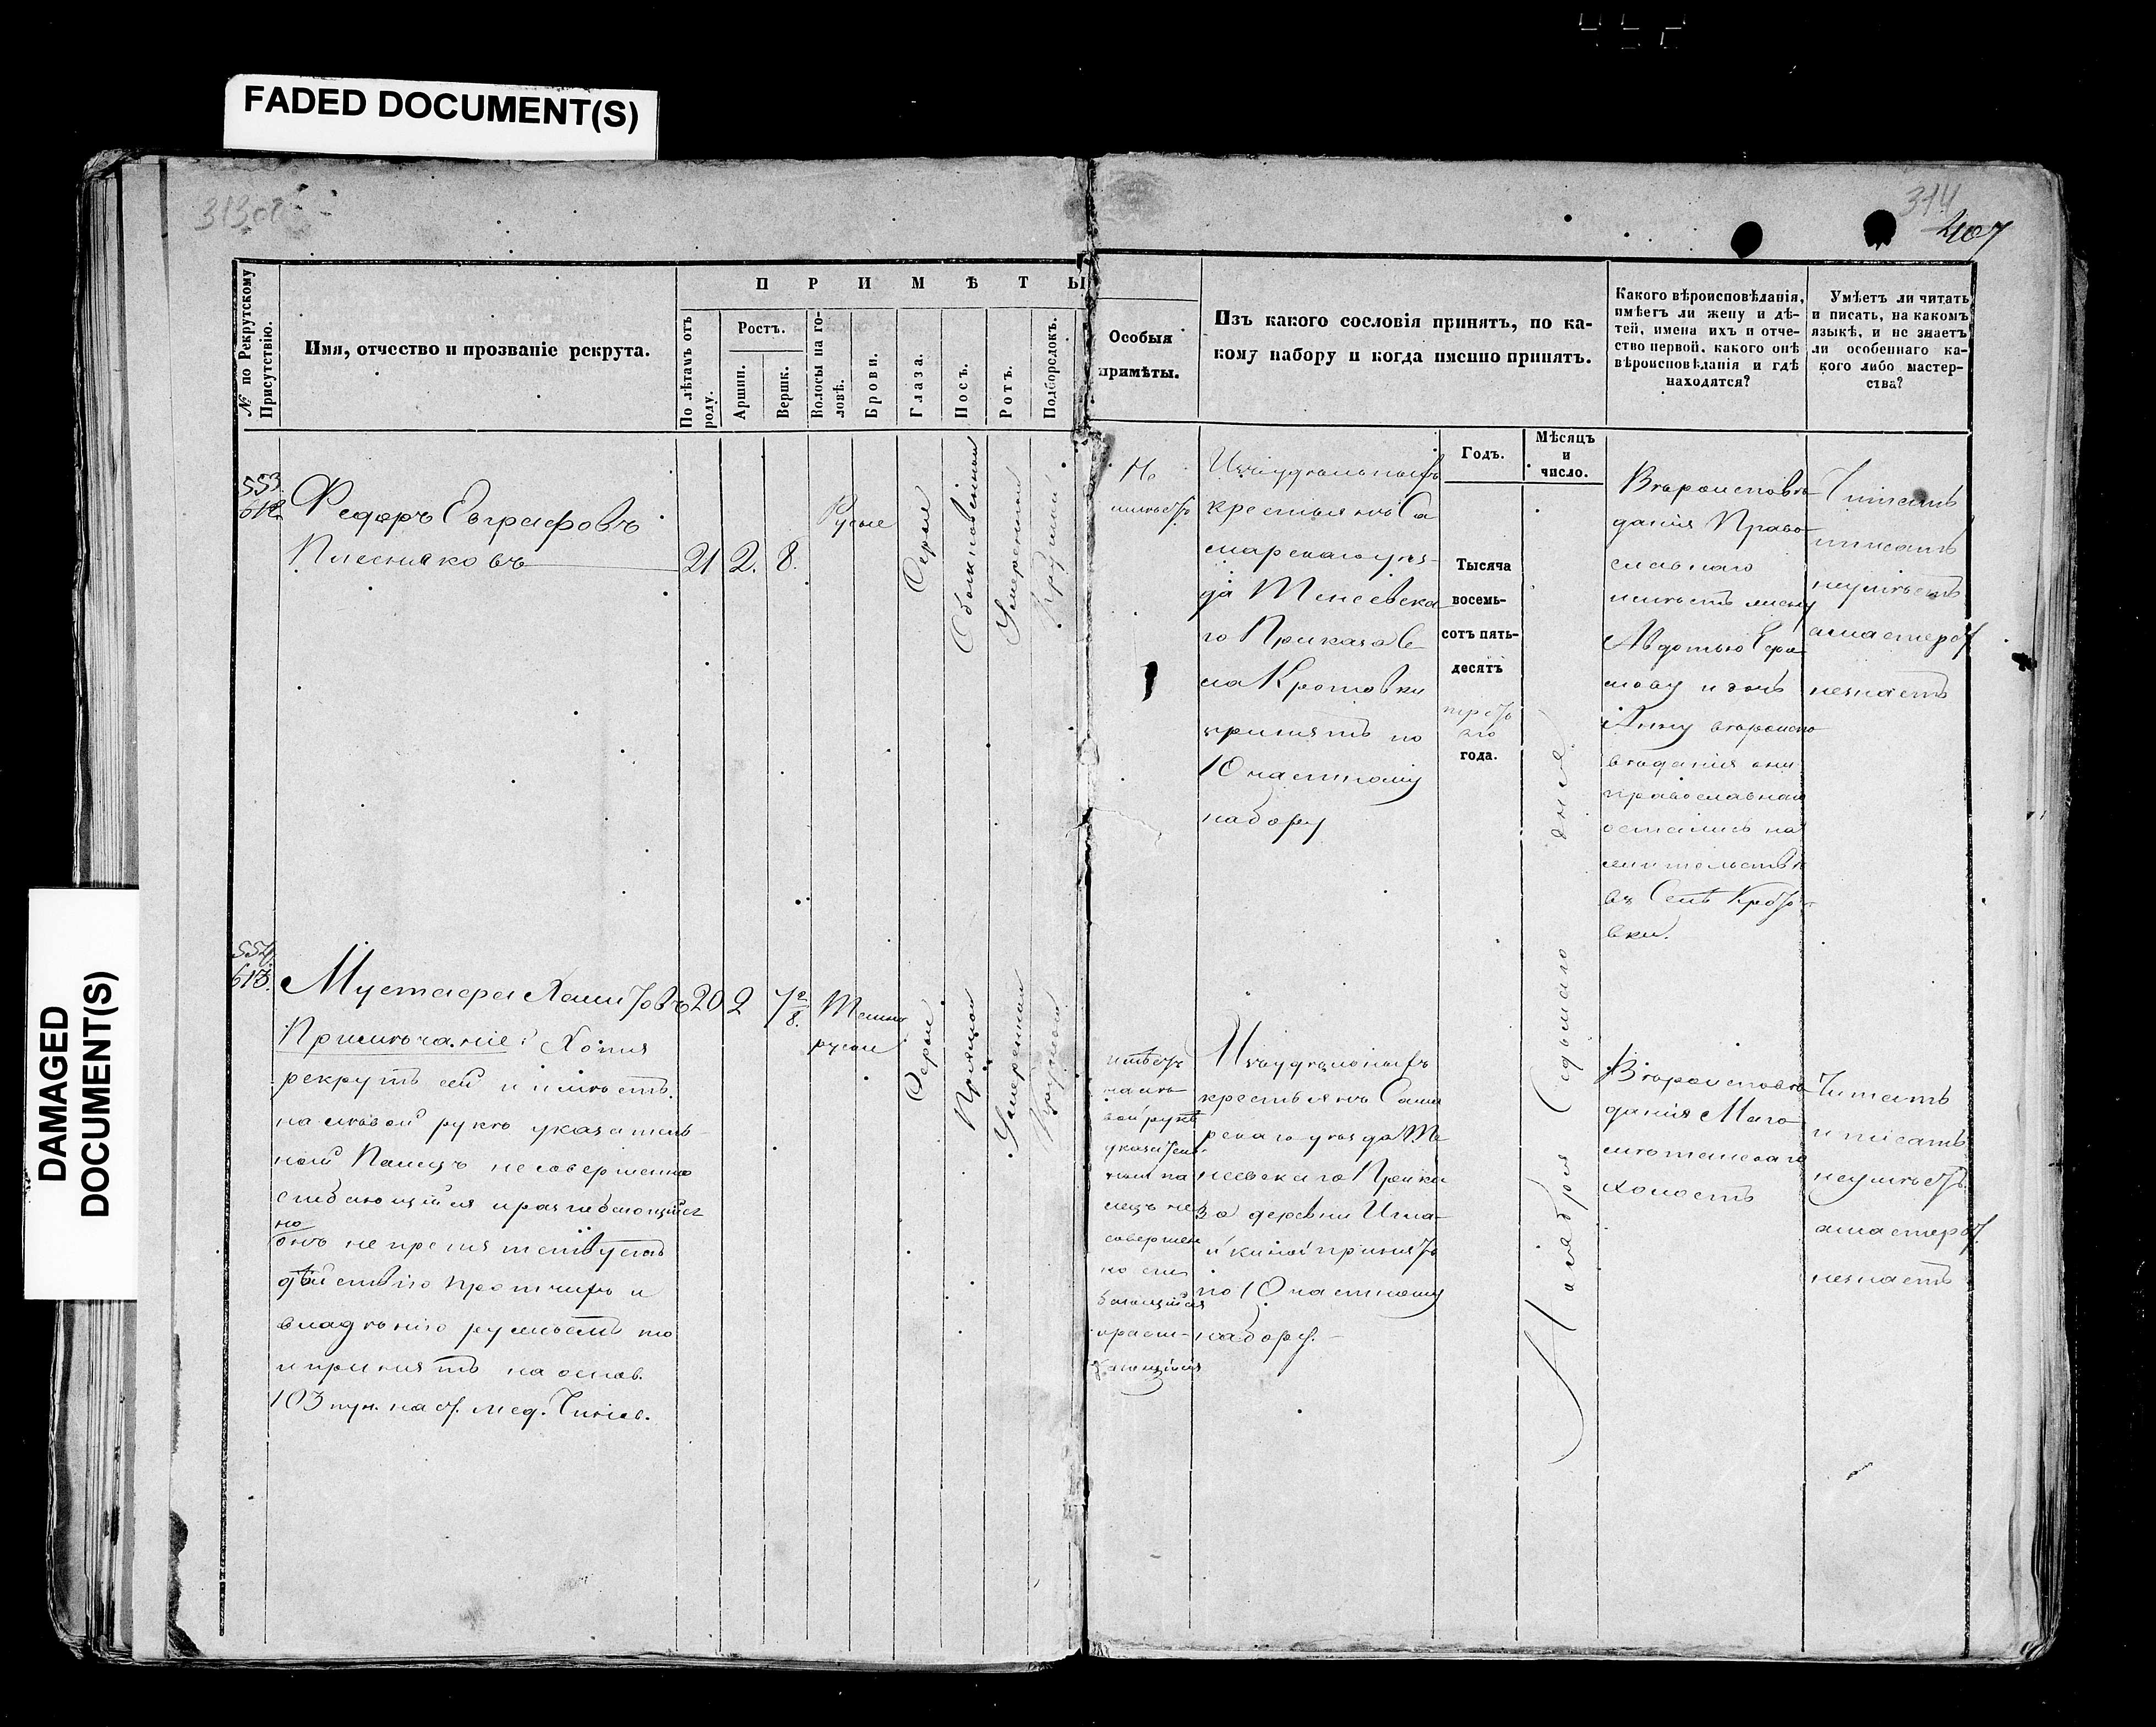 FADED DOCUMENT(S)
DAMAGED
DOCUMENT(S)
313об
314
407
№ по Рекрутскому
Присутствію.
Имя, отчество и прозваніе рекрута.
П Р И М Ѣ Т Ы
По лѣтамъ отъ
роду.
Ростъ.
Аршин.
Вершк.
Волосы на го-
ловѣ.
Брови.
Глаза.
Носъ.
Ротъ.
Подбородокъ.
Особыя
примѣты.
Изъ какого сословія принятъ, по ка-
кому набору и когда именно принятъ.
Какого вѣроисповѣданія,
имѣетъ ли жену и дѣ-
тей, имена ихъ и отче-
ство первой, какого онѣ
вѣроисповѣданія и гдѣ
находятся?
Умѣетъ ли читать
и писать, на какомъ
языкѣ, и не знаетъ
ли особеннаго ка-
кого либо мастер-
ства?
Годъ.
Мѣсяцъ
и
число.
553.
612.
Федоръ Евграфовъ
21 2. 8.
Русые
Серые
Обыкновенный
Умеренный
Круглый
Не
имѣетъ
Изъ удѣльныхъ
крестьянъ Са
марскаго уѣз-
да Тенеевска
го Приказа Се
ла Кротовки
принятъ по
10 частному
набору
Тысяча
восемь-
сотъ пять-
десятъ
треть
яго
года.
Ноября Седьмаго дня.
Вѣроисповѣ
данія Право
славнаго
имѣетъ жену
Авдотью Ефи
мову и дочь
Анну вѣроиспо
вѣданія они
православнаго
остались на
жительствѣ
въ Селѣ Крот
вки.
Читать
писать
неумѣетъ
а мастерст.
незнаетъ
554.
613.
Мустафа Хамитовъ 20 2 7 2/8.
Примѣчаніе: Хотя
рекрутъ сей и имѣетъ
на лѣвой рукѣ указатель-
ный Палецъ несовершенно
сгибающійся и разгибающійся
но
онъ не препятствуетъ
дѣйствію прочихъ и
владѣнію ружьемъ то
и принятъ на основ.
103 пун. наст. мед. Чинов.
Темно
русые
Серые
Прямой
Умеренный
Круглый
имѣетъ
на лѣ-
вой рукѣ
указатель-
ный па
лецъ не
совершен
но сги
бающійся
и разги-
бающійся
Изъ удѣльныхъ
крестьянъ Сама
рскаго уѣзда Те
неевскаго Прика
за деревни Ишла-
йкиной принятъ
по 10 частному
набору.
Вѣроисповѣ
данія Маго
метанскаго
холостъ
Читать
и писать
неумѣетъ.
а мастерст.
незнаетъ